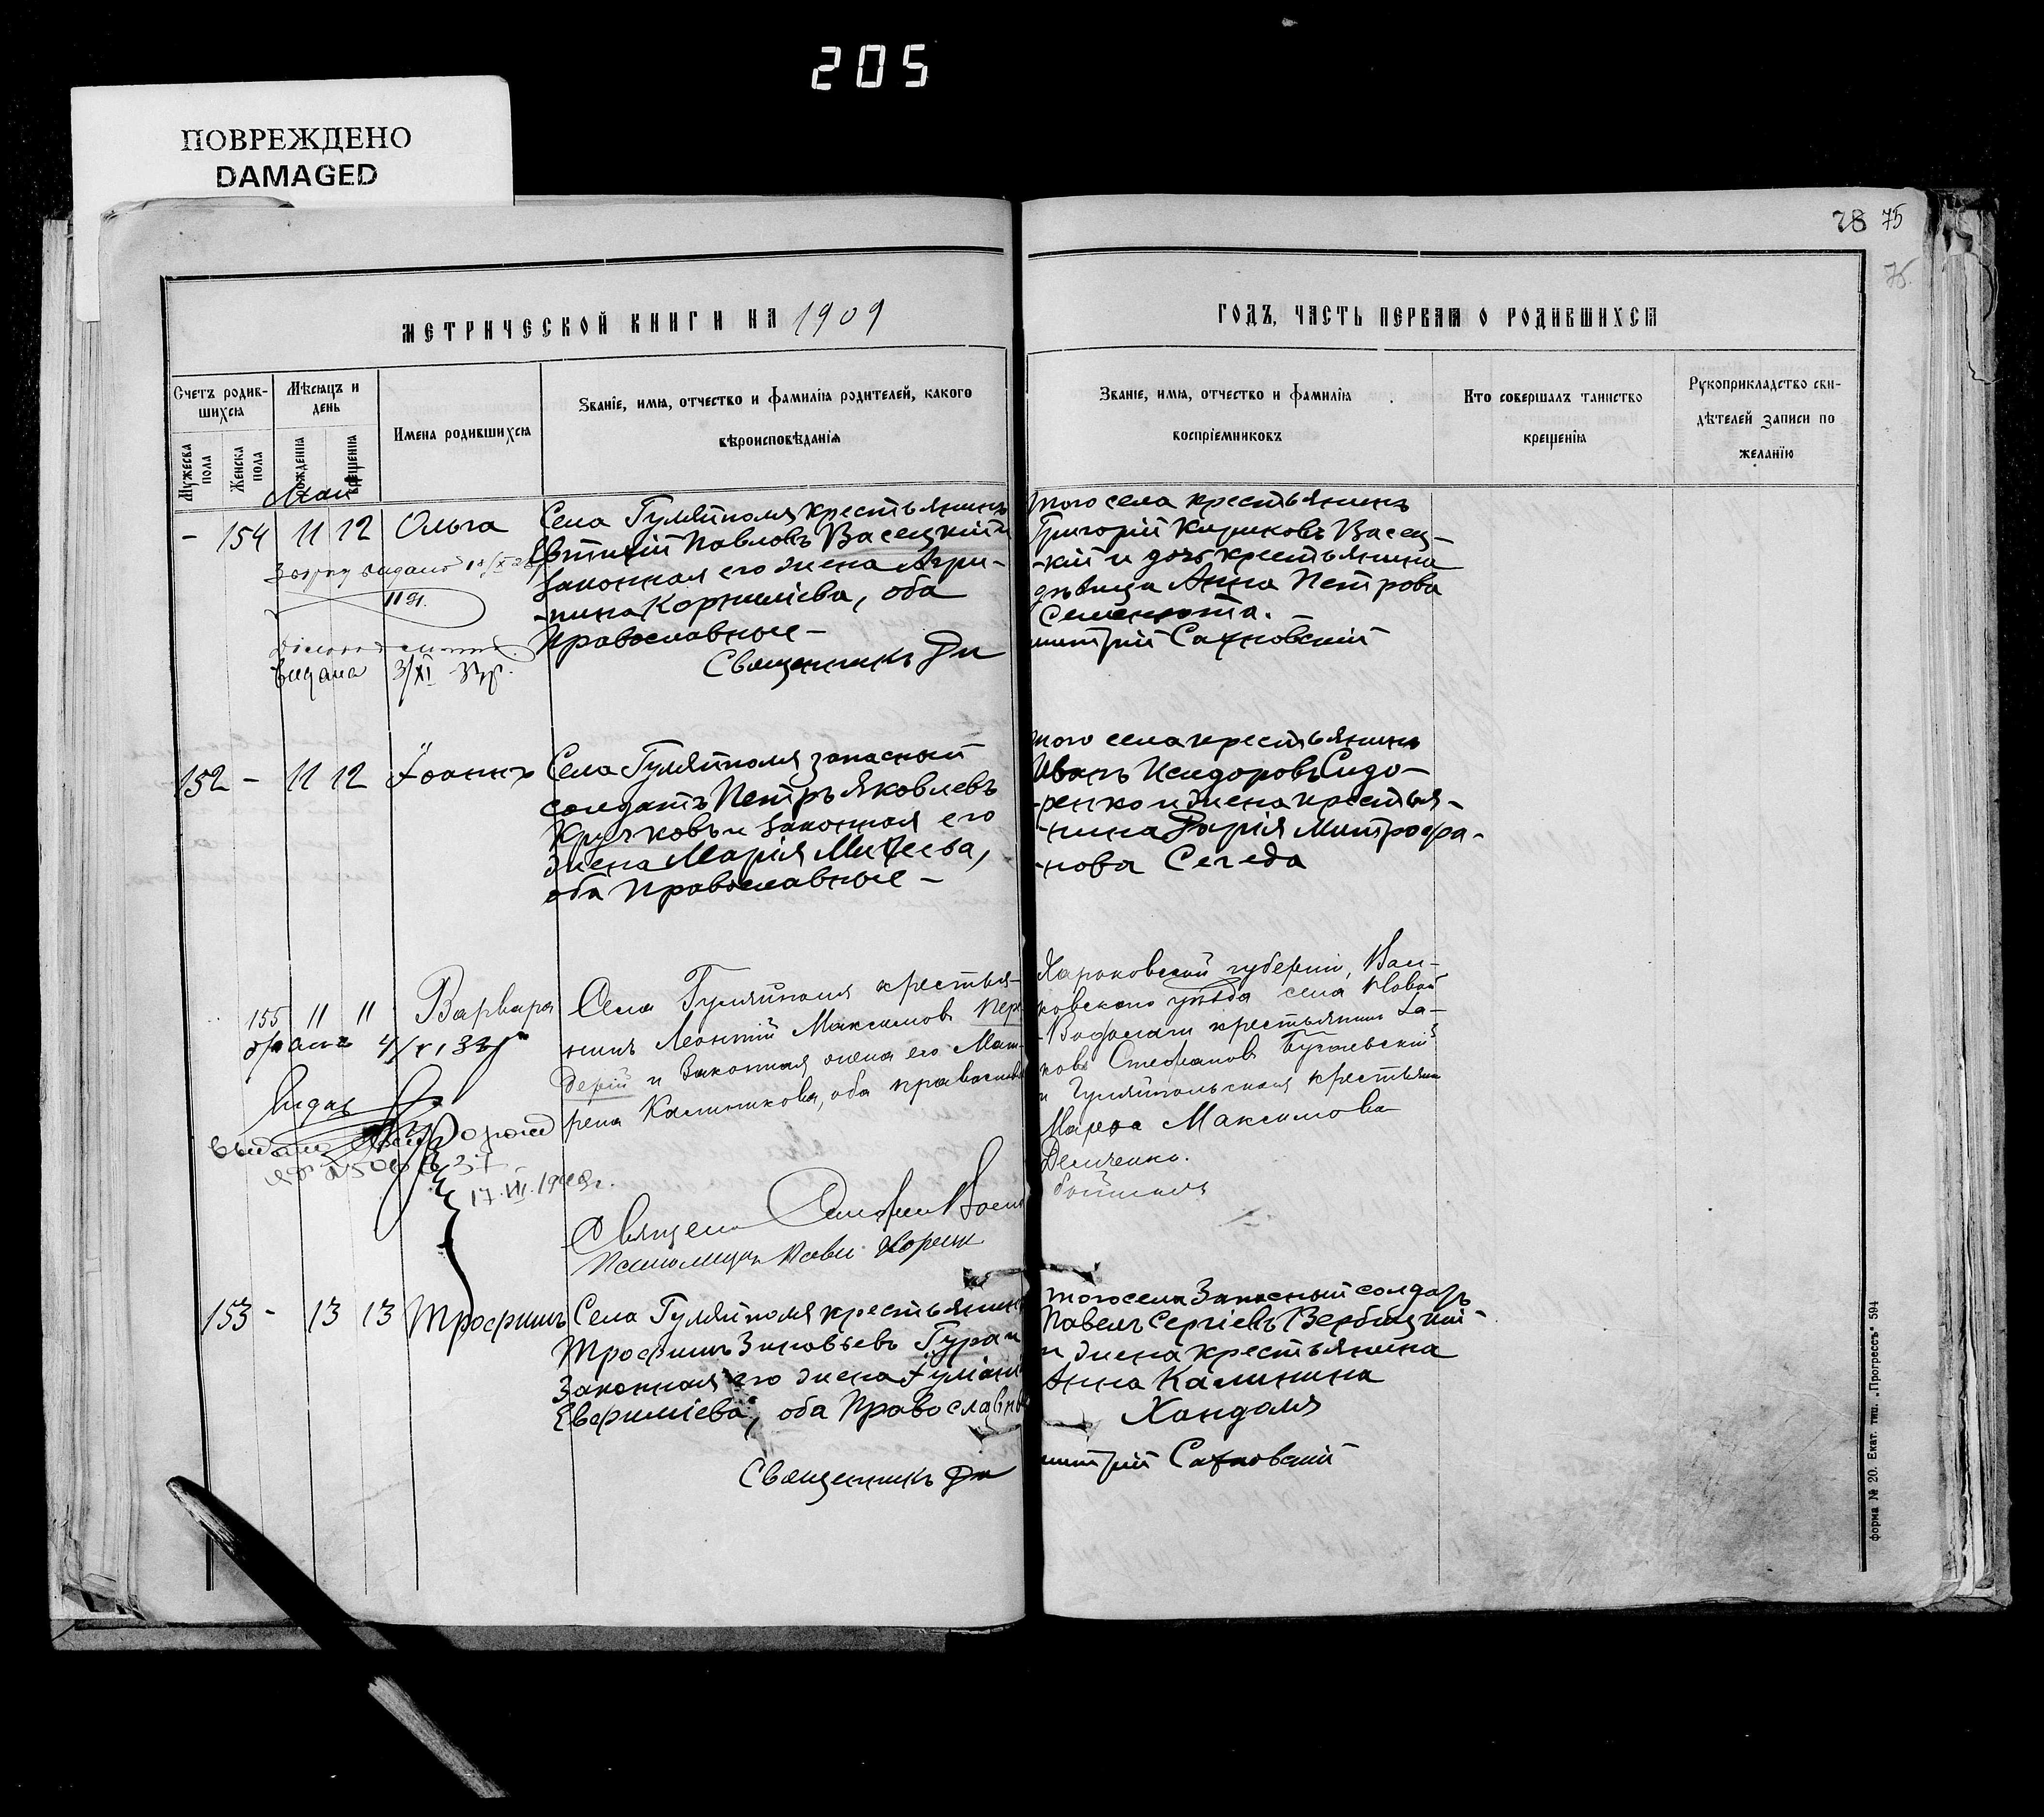 205
ПОВРЕЖДЕНО
DAMAGED
78 75
75
МЕТРИЧЕСКОЙ КНИГИ НА 1909
ГОДЪ, ЧАСТЬ ПЕРВАЯ О РОДИВШИХСЯ
Счетъ родив-
шихся
Мѣсяцъ и
день
Имена родившихся
Званіе, имя, отчество и фамилія родителей, какого
вѣроисповѣданія
Мужеска
пола
Женска
пола
рожденія
крещенія
Званіе, имя, отчество и фамилія
воспріемниковъ
Кто совершалъ таинство
крещенія
Рукоприкладство сви-
дѣтелей записи по
желанію
Май
- 154 11 12 Ольга
Села Гуляйполя крестьянинъ
Евтихій Павловъ Васецкій и
законная его жена Агри-
-пина Корнилiева, оба
Православные -
Священникъ Ди
того села крестьянинъ
Григорій Кириковъ Васец-
-кій и дочь крестьянина
дѣвица Анна Петрова
Семенюта. -
митрій Сахновскій
видана 3/XI
152 - 11 12 Іоаннъ
Села Гуляйполя запасный
солдатъ Петръ Яковлевъ
Кручковъ и законная его
жена Марія Михеева,
оба Православные -
того села крестьянинъ
Иванъ Исидоровъ Сидо-
-ренко и жена крестья-
-нина Дарія Митрофа-
-нова Сегеда
155 11 11 Варвара
Села Гуляйполя крестья-
нинъ Леонтій Максимов Пер
дерій и законная жена его Мат-
рена Калиникова, оба православ
Харьковской губерніи, Вал-
ковского уѣзда села Новой
-Водолаги крестьянинъ Іа-
ковъ Стефановъ Бугаевскій
и Гуляйпольская крестьянка
Марѳа Максимова
Демченко.
17.VII.19
153 - 13 13 Трофимъ
Села Гуляйполя крестьянинъ
Трофимъ Зиновьевъ Гура и
законная его жена Іуліанія
Евфиміева, оба Православные
Священникъ Ди
того села Запасный солдатъ
Павелъ Сергіевъ Вербицкій-
и жена крестьянина
Анна Калинина
Хандоля
митрій Сахновскій
форма № 20. Екат. тип. „Прогрессъ" 594